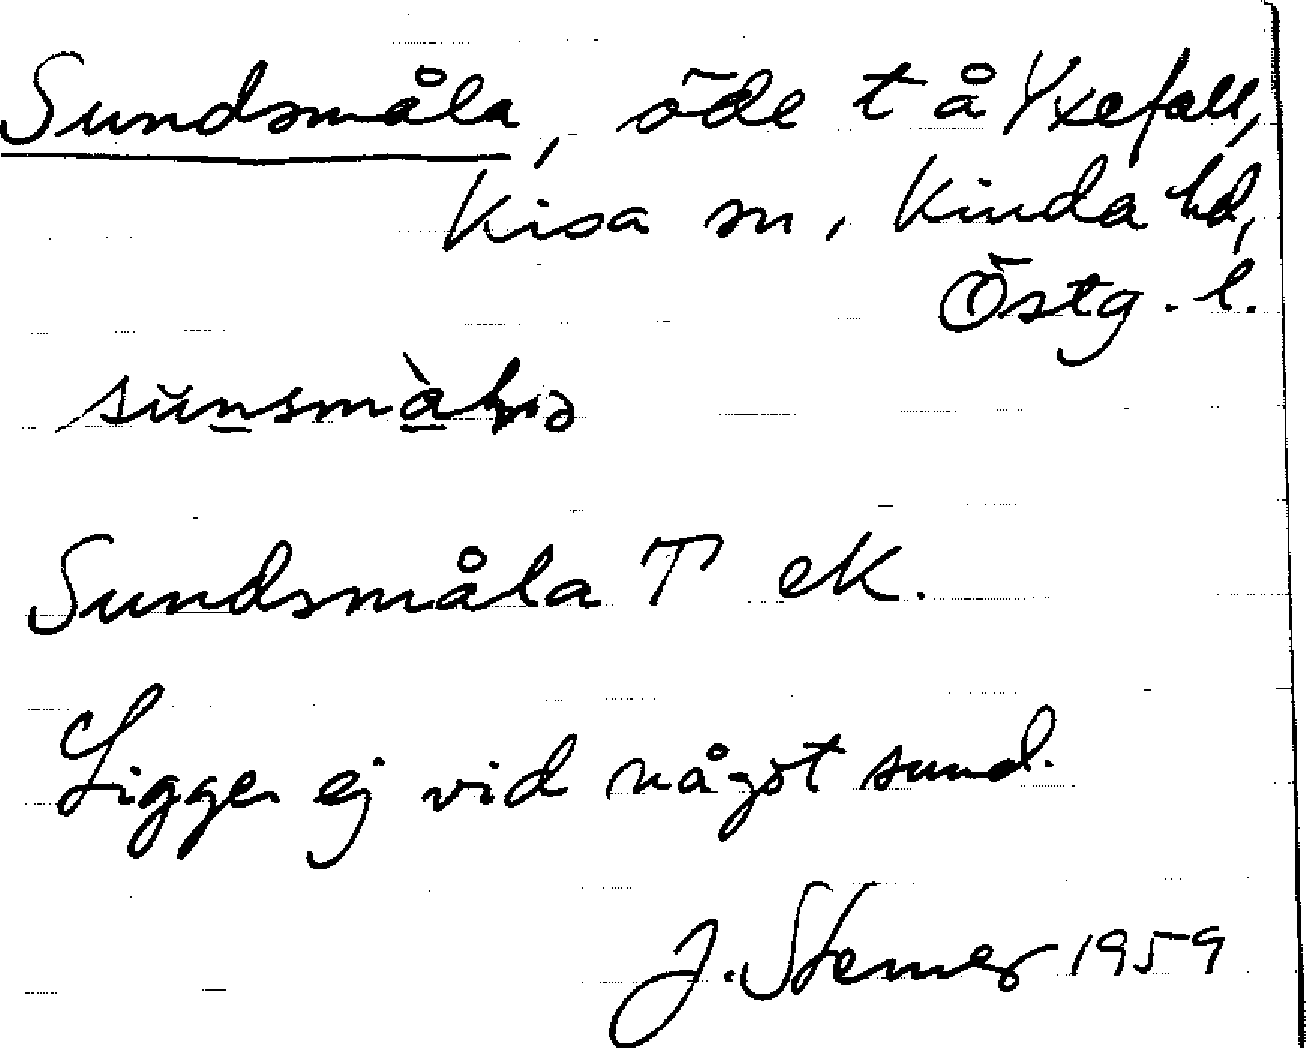 Sundsmåla, öde t å Yxefall,
Kisa sn, Kinda hd,
Östg. l.
Sundsmåla T ek.
Ligger ej vid något sund.
J. Stemer 1959